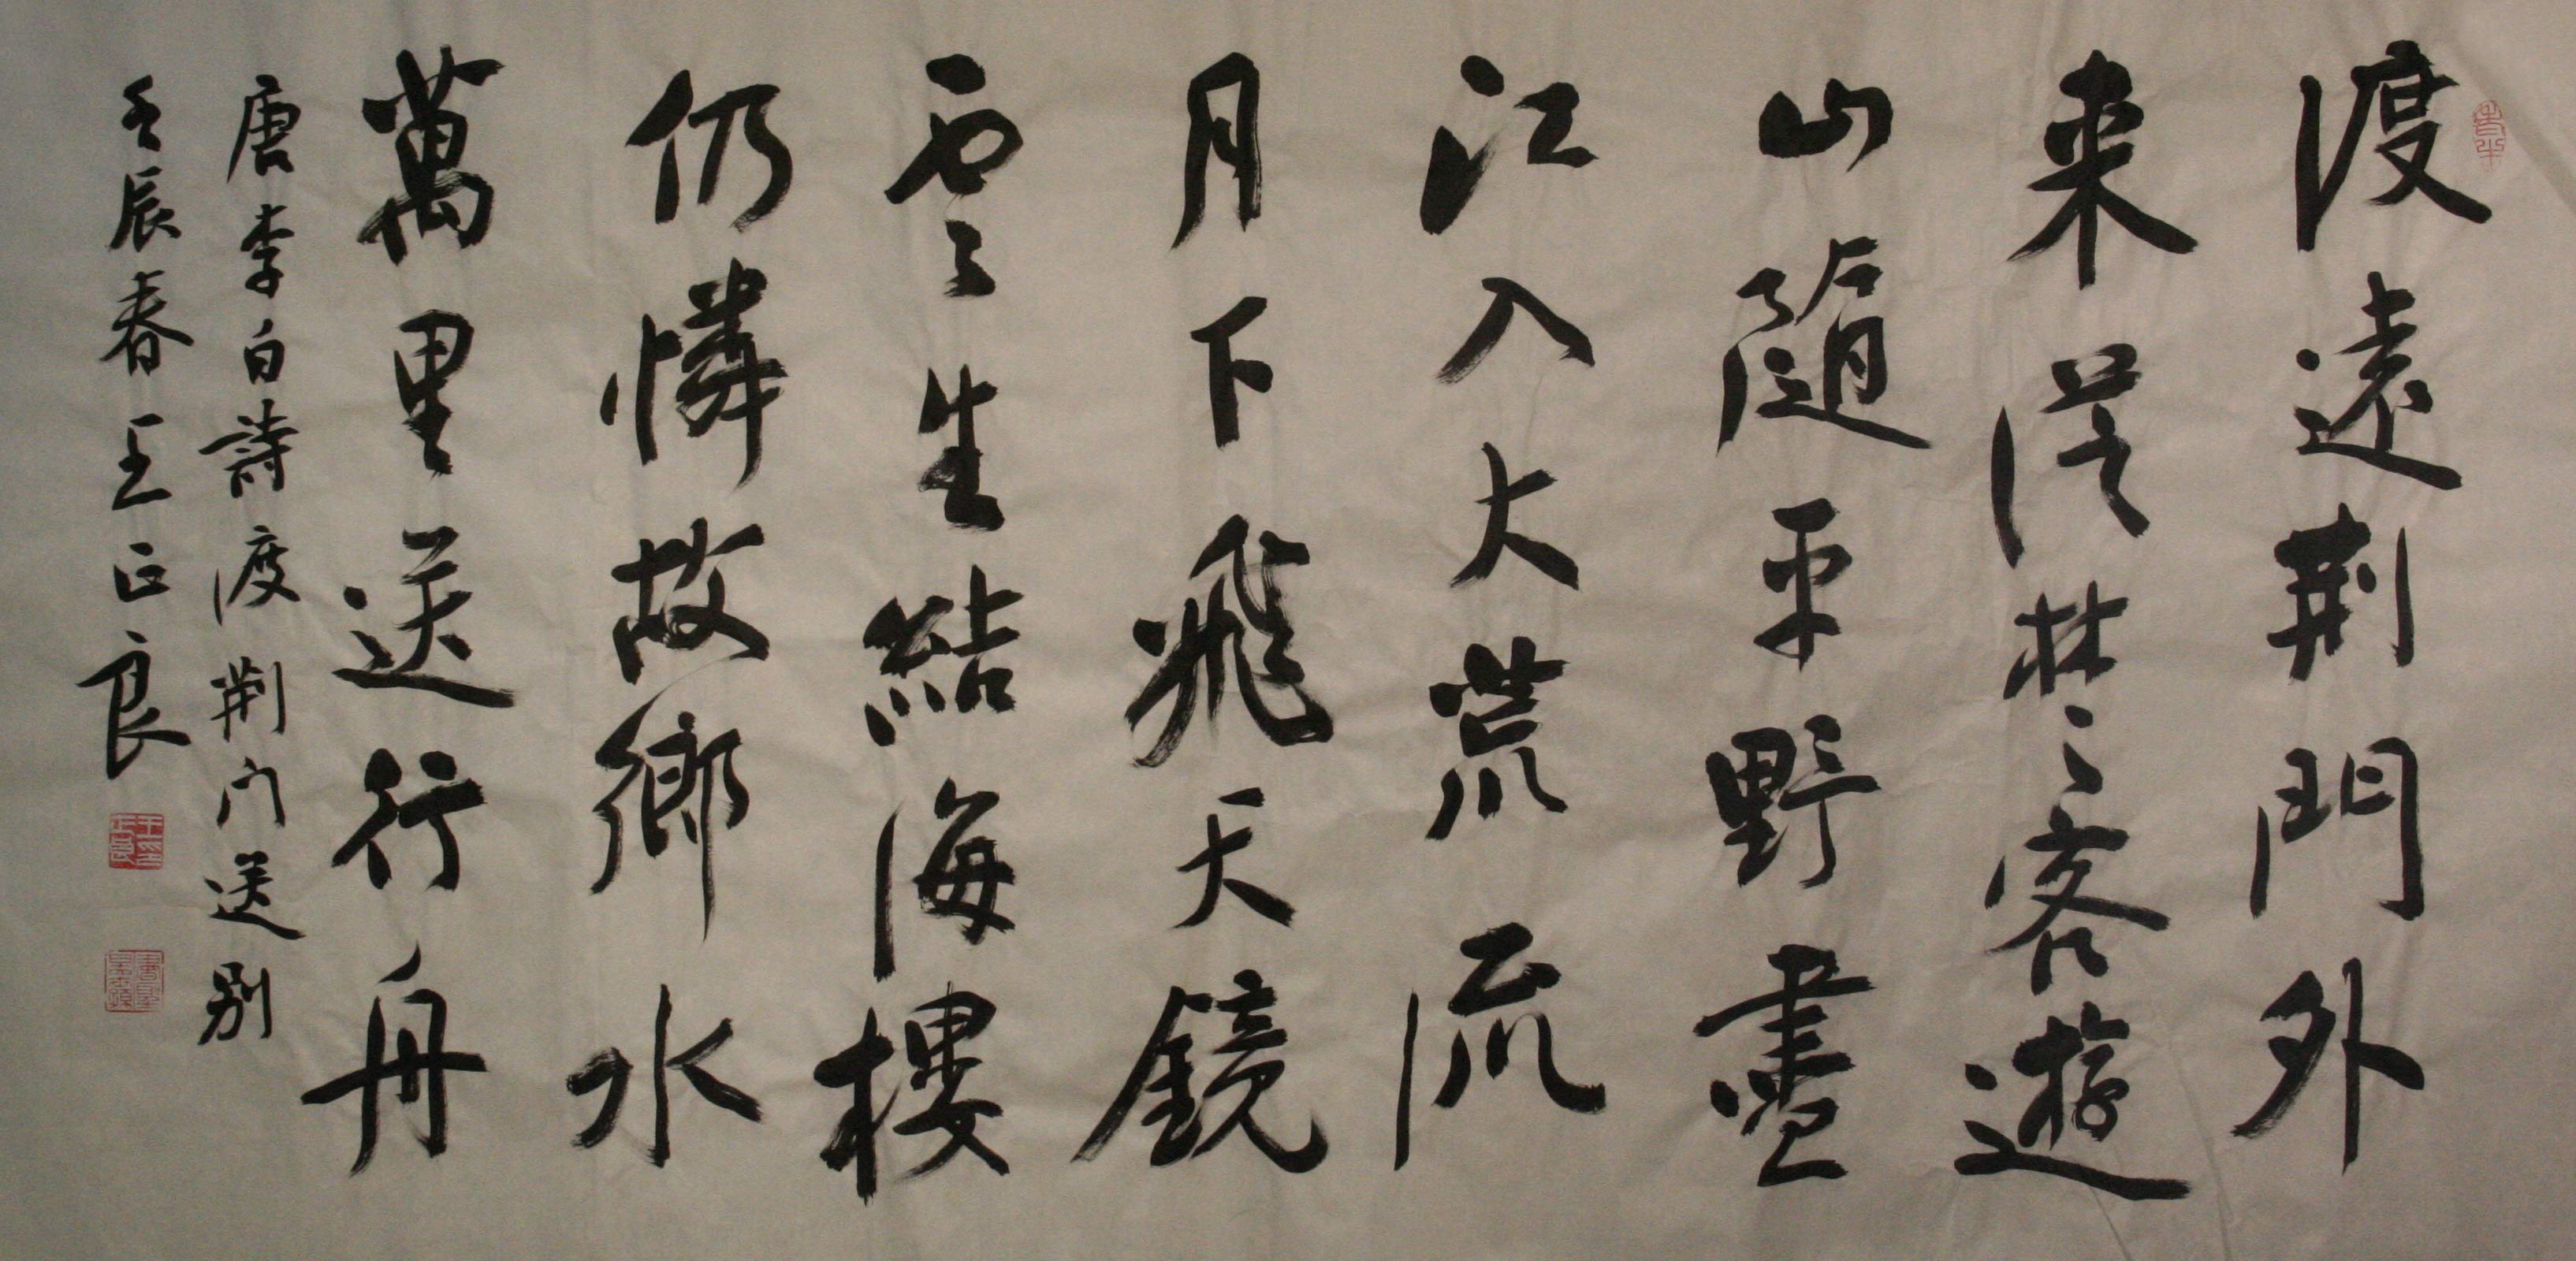 渡遠荆門外
来從楚客遊
山隨平野盡
江入大荒流
月下飛天鏡
雲生結海樓
仍憐故鄉水
萬里送行舟
唐李白詩渡荆门送别
壬辰春王正良
王正良印